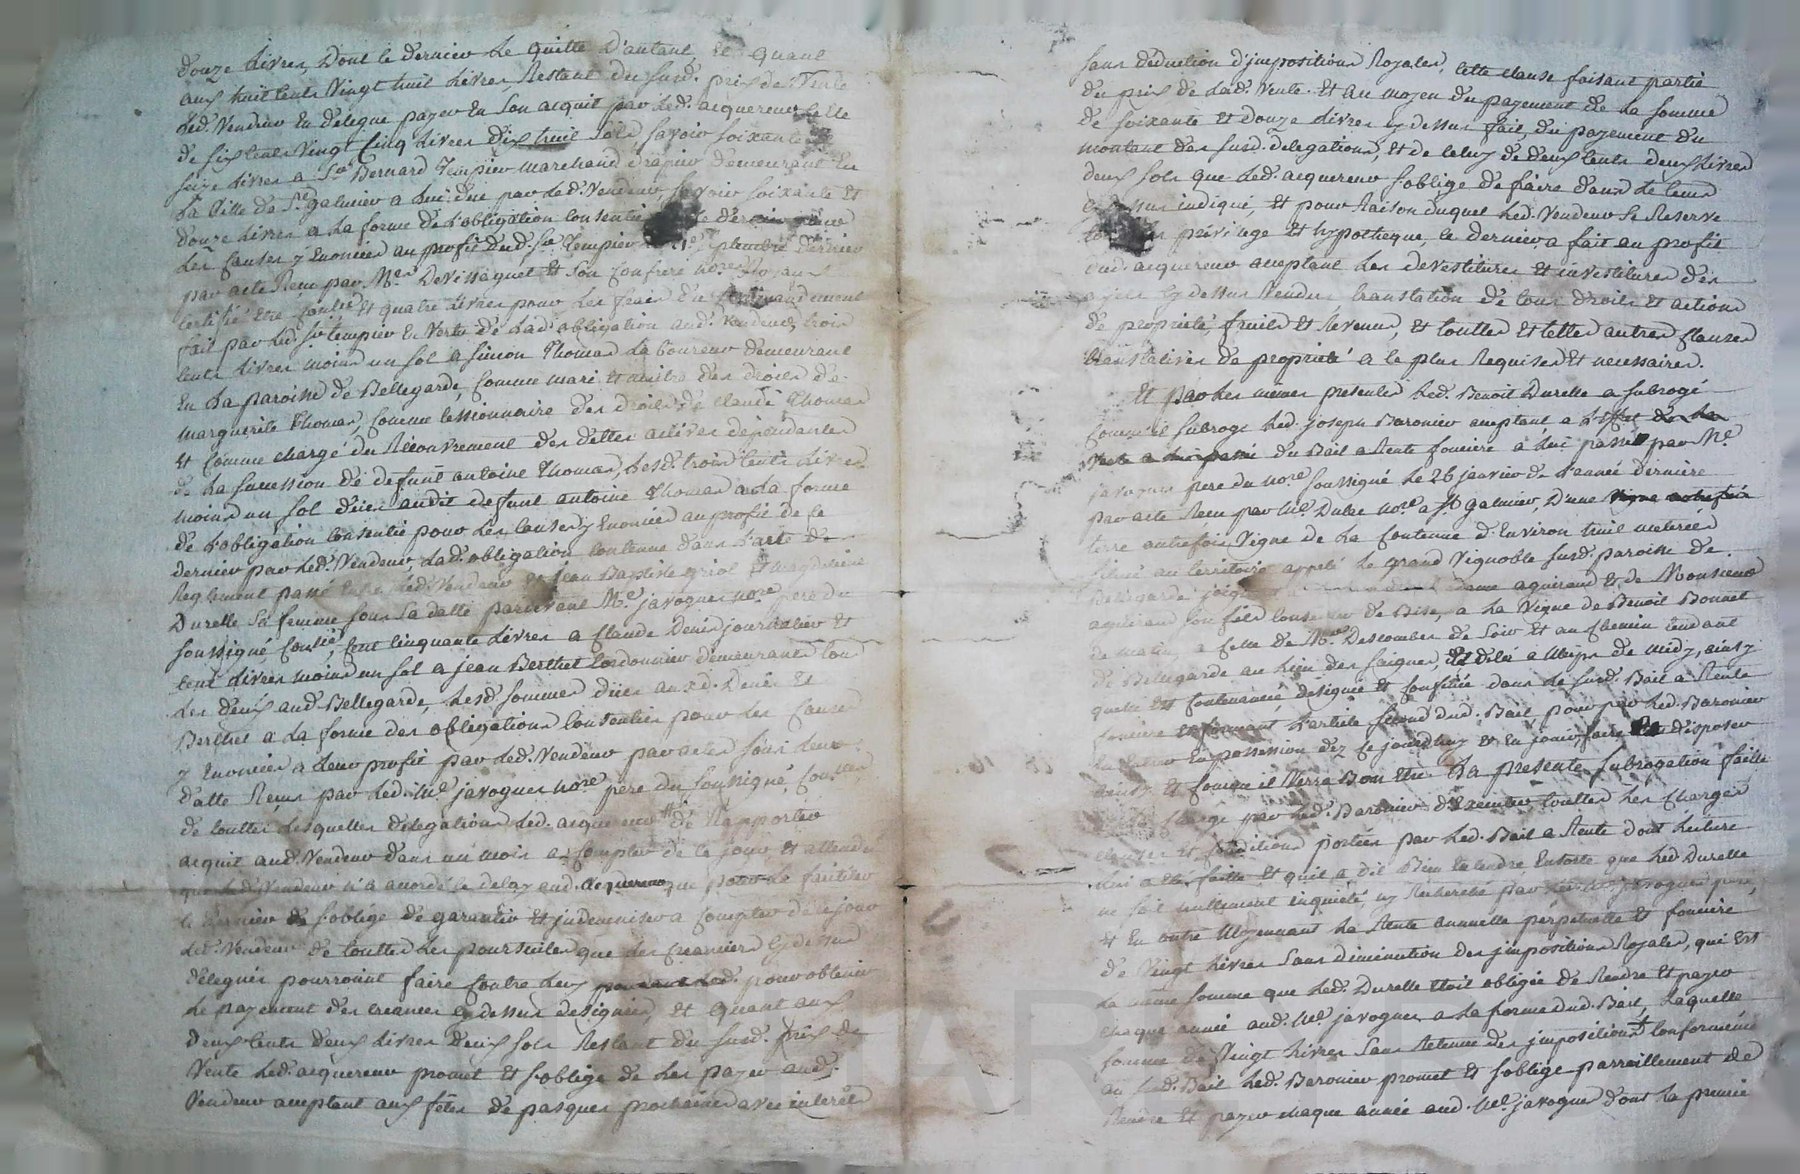 douze Livres, Dont le dernier le quitte D'autant Et Quant
aux huit Cents Vingt huit Livres Restant du susd. prix de Vente
Led. Vendeur En delegue payer En Son acquit par Led. acquereur celle
de six Cents Vingt Cinq Livres dix huit Sols savoir soixante
seize Livres a Sr. Bernard Tempier marchand drapier demeurant En
La Ville de St. galmier a Lui due par Led. Vendeur, savoir soixante et
douze Livres a La forme de L'obligation Consentie
Les Causes y Enoncées au profit dud. Sr. Tempier 7bre dernier
par acte Recu par Me. Devissaguet et son Confrere nores Royaux
Certifié être Controllé et quatre Livres pour Les frais du Commandement
fait par Led. Sr tempier En Vertu de Lad. obligation aud. Vendeur, trois
Cents Livres moins un sol a Simon Thomas Laboureur demeurant
En La paroisse de Bellegarde, Comme mari et maitre des droits de
marguerite Thomas, Comme Cessionnaire des droits de Claude Thomas
Et Comme chargé du Recouvrement des dettes actives dependantes
de La succession de defunt antoine Thomas, Lesd. trois Cents Livres
moins un sol dües audit defunt antoine Thomas a La forme
de L'obligation Consentie pour Les Causes y Enoncées au profit de ce
dernier par Led. Vendeur Lad. obligation Contenue dans L'acte de
Reglement passé Entre Led. Vendeur et jean Baptiste griot Et magdeleine
Durelle Sa femme sous Sa datte pardevant Me. javogues nore. pere du
soussigné Contlé., Cent Cinquante Livres a Claude Denis journalier et
Cent Livres moins un sol a jean Berthet Cordonnier demeurants tous
Les deux aud. Bellegarde, Lesd. sommes dües auxd. Denis Et
Berthet a La forme des obligations Consenties pour Les Causes
y Enoncées a Leur profit par Led. Vendeur par actes sous Leur
datte Recus par Led. Me. javogues nore. pere du soussigné, Contllés.
de touttes Lesquelles delegations Led. acquereur de Rapporter
acquit aud. Vendeur dans un mois a Compter de ce jour, et attendu
que Led. Vendeur n'a accordé le delay aud. acquereur que pour Le faciliter
le dernier s'oblige de garantir Et jndemniser a Compter de ce jour
Led. Vendeur de touttes Les poursuites que Les Creanciers Cy dessus
delegués pourroient faire Contre Lui pour obtenir
Le payement des Creances Cy dessus designées, et Quant aux
deux Cents deux Livres deux sols Restant du susd. prix de
Vente Led. acquereur promet Et s'oblige de Les payer aud.
Vendeur acceptant aux fêtes de pasques prochaines avec interêts
sans deduction d'jmpositions Royales, Cette clause faisant partie
du prix de Lad. Vente. Et au moyen du payement de La somme
de soixante et douze Livres Cy dessus fait, du payement du
montant des susd. delegations, et de Celuy de deux Cents deux Livres
deux sols que Led. acquereur s'oblige de faire dans Le tems
Cy dessus indiqué, et pour Raison duquel Led. Vendeur Se Reserve
privilege Et hypotheque, le dernier a fait au profit
dud. acquereur acceptant Les devestitures Et investitures des
Cy dessus Vendus translation de tous droits et actions
de proprieté, fruits et Revenus, et touttes et telles autres clauses
translatives de proprieté a ce plus Requises Et necessaires.
Et par Les mêmes presentes Led. Benoit Durelle a subrogé
Comme il subroge Led. joseph Baronier acceptant a L'effet
du Bail a Rente fonciere a Lui passé par Me.
javogues pere du nore. soussigné Le 26 janvier de L'année derniere
par acte Recu par Me. Dulac nore. a St galmier, D'une
terre autrefois Vigne de La Contenue d'Environ huit meterées
située au territoire appelé Le grand Vignoble susd. paroisse de
Bellegarde joignant Dame aguiraud Et de Monsieur
aguiraud son fils Conseiller de Bise, a La Vigne de Benoit Bonnet
de matin, a Celle de Me. Descombes de Soir Et au Chemin tendant
de Bellegarde au Lieu des faignes, de midy, ainsi
quelle Est Contenancée, designée et Confinée dans Le susd. Bail a Rente
fonciere Et formant L'article second dud. Bail, pour par Led. Baronier
En possession dez Ce jourd'huy Et En jouir, faire Et disposer
ainsi Et Comme il Verra Bon Etre. La presente Subrogation faitte
a la charge par Led. Baronier d'Executer touttes Les Charges
clauses Et Conditions portées par Led. Bail a Rente dont Lecture
Lui a Eté faitte Et qu'il a dit Bien Entendre Ensorte que Led. Durelle
ne soit nullement inquieté ny Recherché par Led. Me javogues pere,
Et En outre Moyennant La Rente annuelle perpetuelle Et fonciere
de Vingt Livres Sans diminution des jmpositions Royales, qui Est
La même somme que Led. Durelle Etoit obligé de Rendre Et payer
chaque année aud. Me. javogues a La forme dud. Bail, Laquelle
somme de Vingt Livres Sans Retenue des jmpositions Conformement
au susd. Bail Led. Baronier promet Et s'oblige parreillement de
Rendre Et payer chaque année aud. Me. javogues dont La premiere